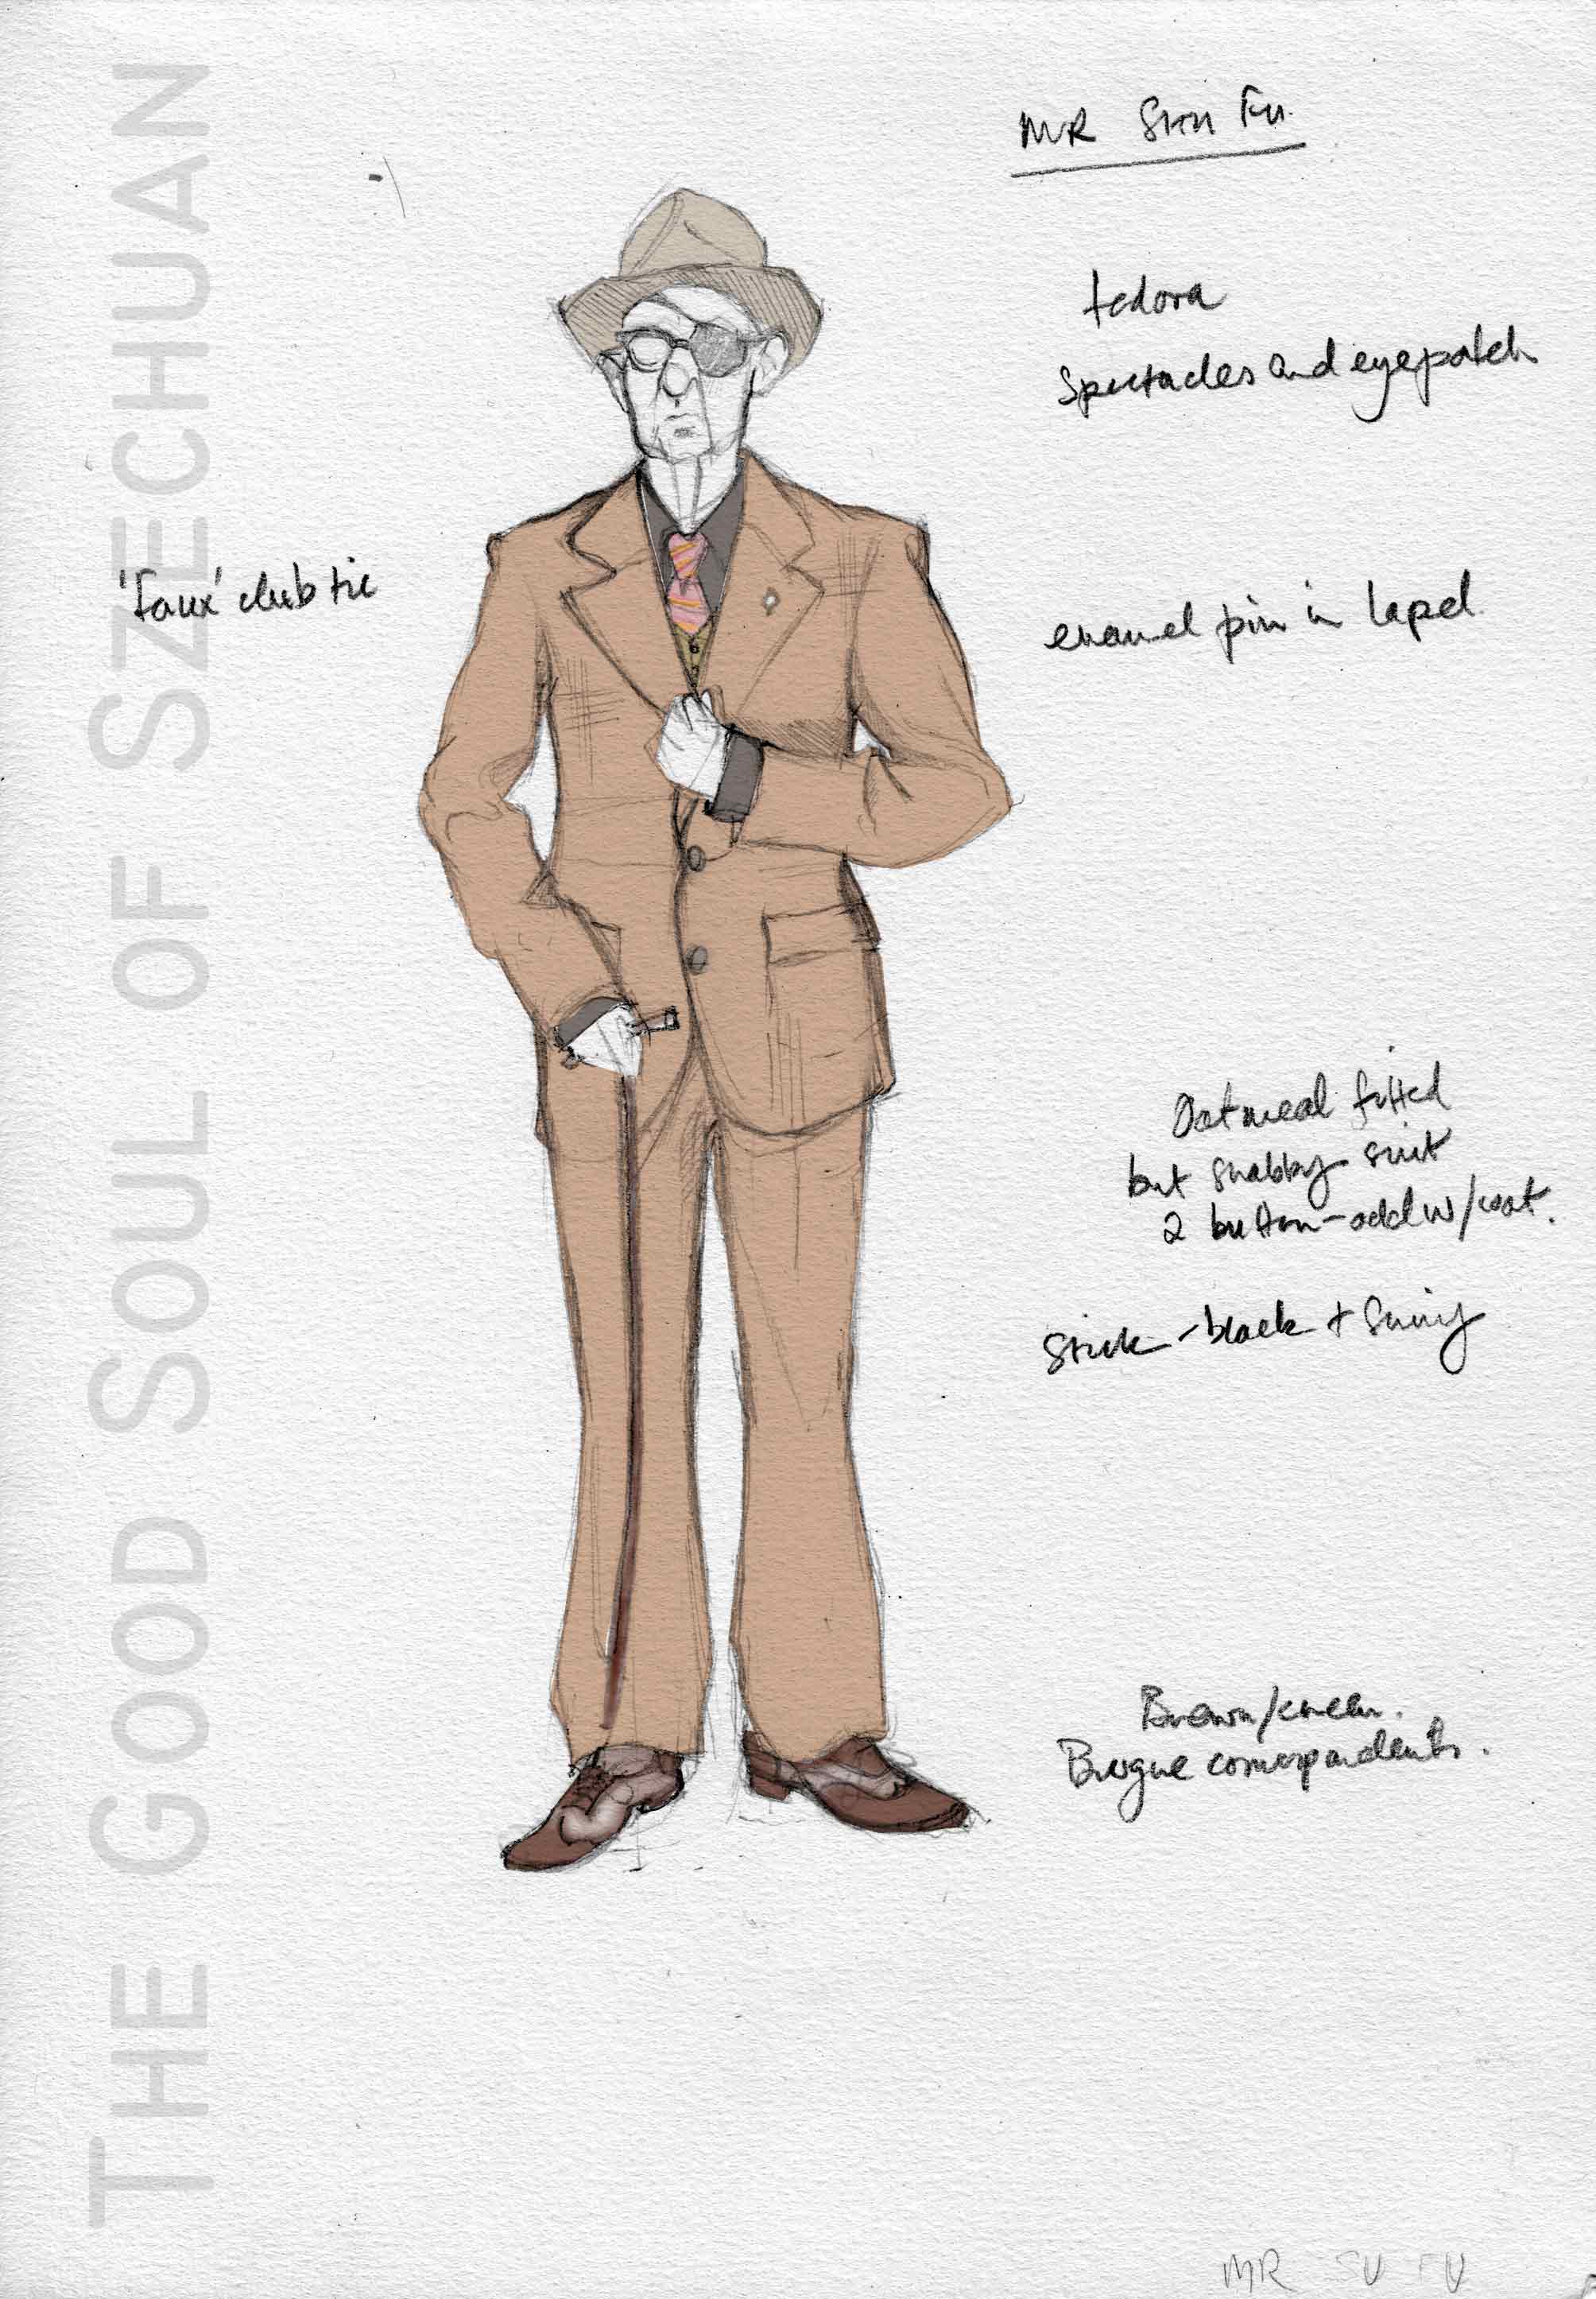 THE GOOD SOUL OF SZECHUAN
MR Shu Fu.
fedora
Spectacles and eyepatch
'Faux' club tie
enamel pin in lapel
Oatmeal fitted
but shabby suit
2 button-odd w/coat.
Stick - black + shiny
Brown/cream.
Brogue correspondents.
MR SU FU